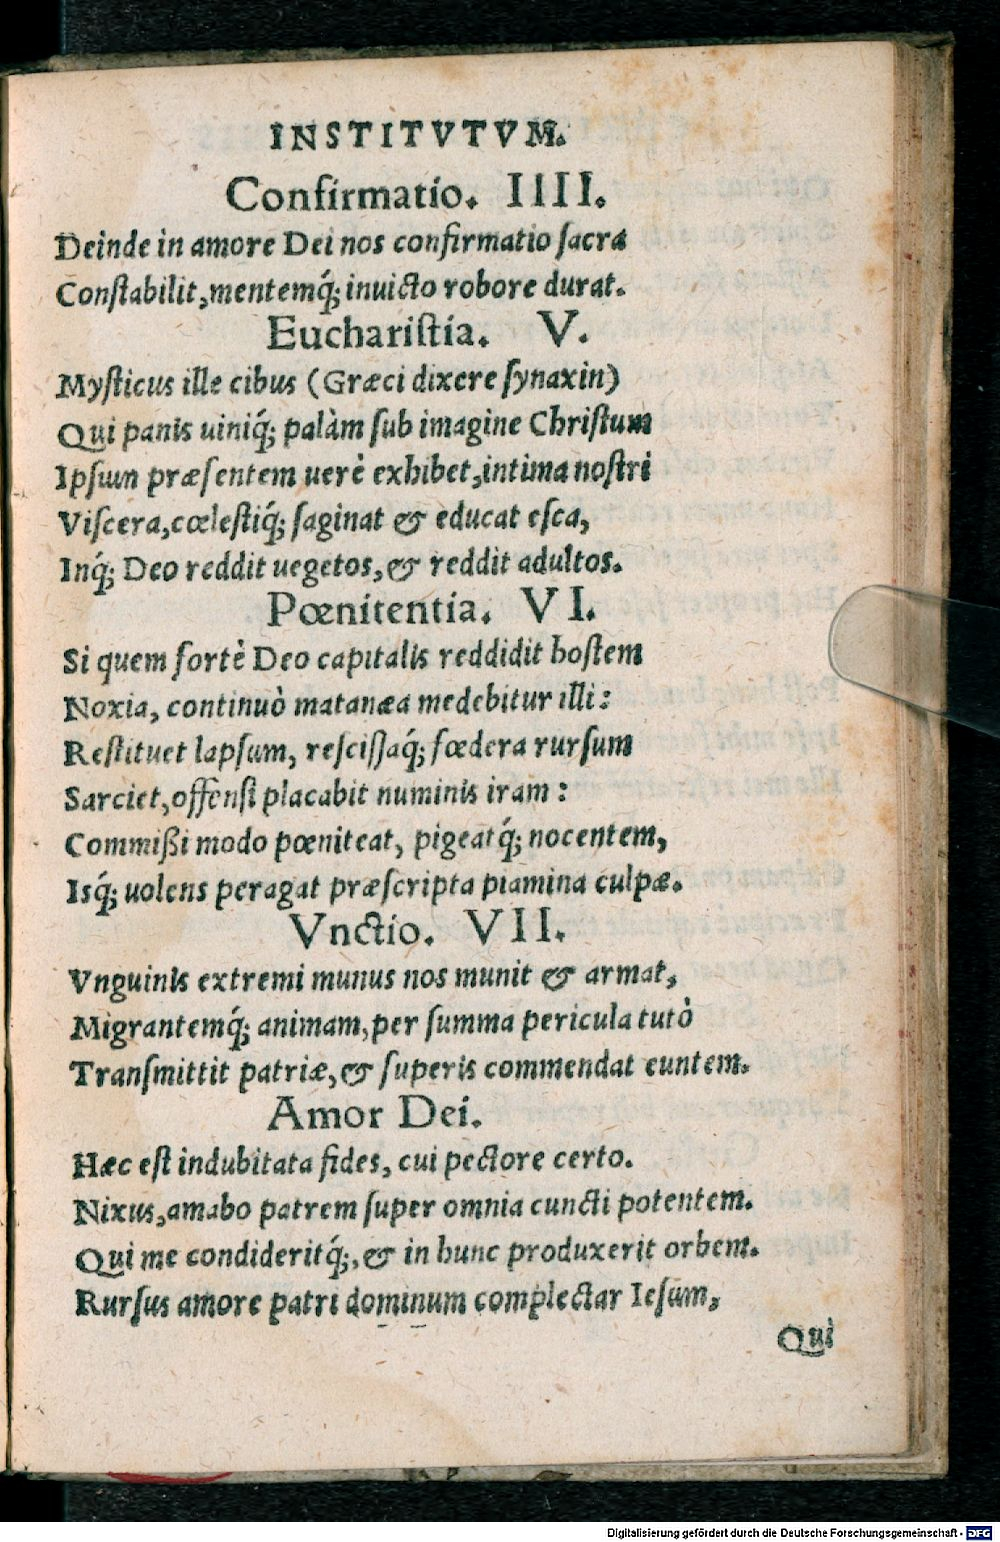 INSTITVTVM.
Confirmatio. IIII.
Deinde in amore Dei nos confirmatio ſacra
Conſtabilit, mentemq́; inuicto robore durat.
Euchariſtia. V.
Myſticus ille cibus (Græci dixere ſynaxin)
Qui panis uiniq́; palàm ſub imagine Chriſtum
Ipſum præſentem uerè exhibet, intima noſtri
Viſcera, cœleſtiq́; ſaginat & educat eſca,
Inq́; Deo reddit uegetos, & reddit adultos.
Pœnitentia. VI.
Si quem fortè Deo capitalis reddidit hoſtem
Noxia, continuò matanæa medebitur illi:
Reſtituet lapſum, reſciſſaq́; fœdera rurſum
Sarciet, offenſi placabit numinis iram:
Commißi modo pœniteat, pigeatq́; nocentem,
Isq́; uolens peragat præſcripta piamina culpæ.
Vnctio. VII.
Vnguinis extremi munus nos munit & armat,
Migrantemq́; animam, per ſumma pericula tutò
Tranſmittit patriæ, & ſuperis commendat euntem.
Amor Dei.
Hæc eſt indubitata fides, cui pectore certo.
Nixus, amabo patrem ſuper omnia cuncti potentem.
Qui me condideritq́;, & in hunc produxerit orbem.
Rurſus amore patri dominum complectar Ieſum,
Qui
Digitalisierung gefördert durch die Deutsche Forschungsgemeinschaft - DFG